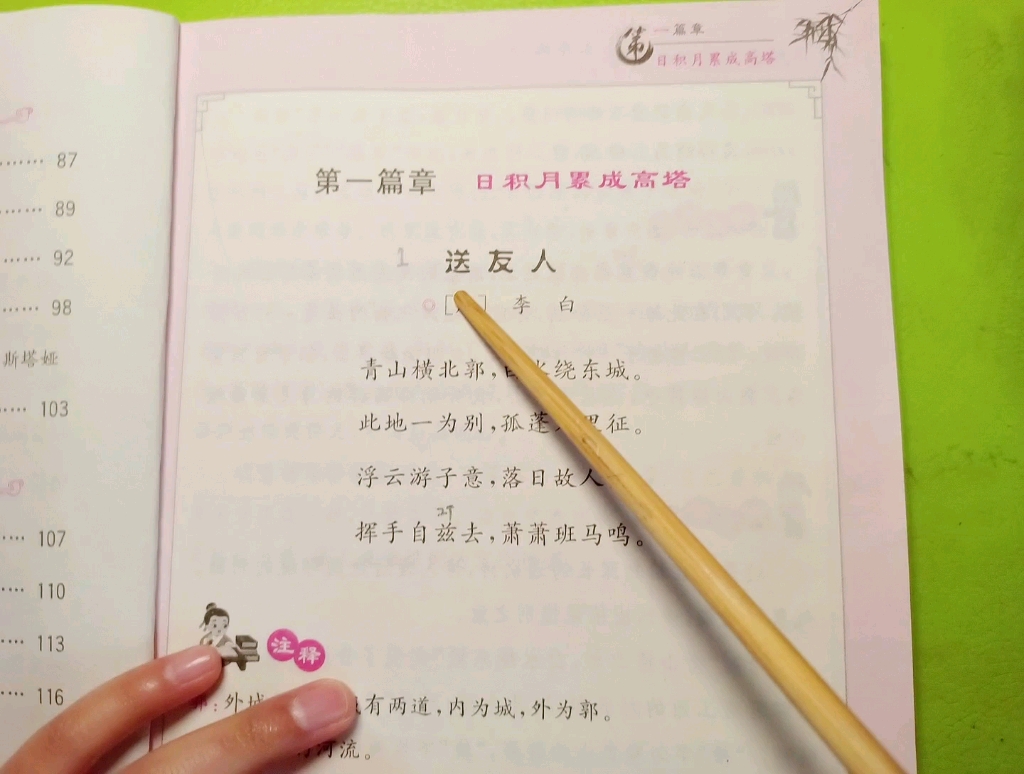 87
89
92
98
斯塔娅
103
107
110
113
116
第一篇章
日积月累成高塔
第一篇章 日积月累成高塔
1 送友人
李 白
青山横北郭，水绕东城。
此地一为别，孤蓬里征。
浮云游子意，落日故人
zī
挥手自兹去，萧萧班马鸣。
注释
：外城有两道，内为城，外为郭。
河流。